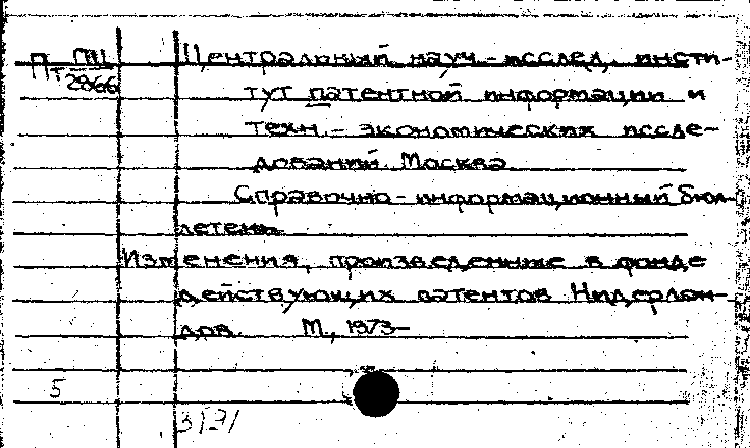 П ПЦ Центральный науч.-исслед. инсти-
Т2966 тут патентной информации и
техн.-экономических иссле-
дований. Москва
Справочно-информационный бюл-
летень.
Изменения, произведенные в фонде
действующих патентов Нидерлан-
дов. М., 1973-
5